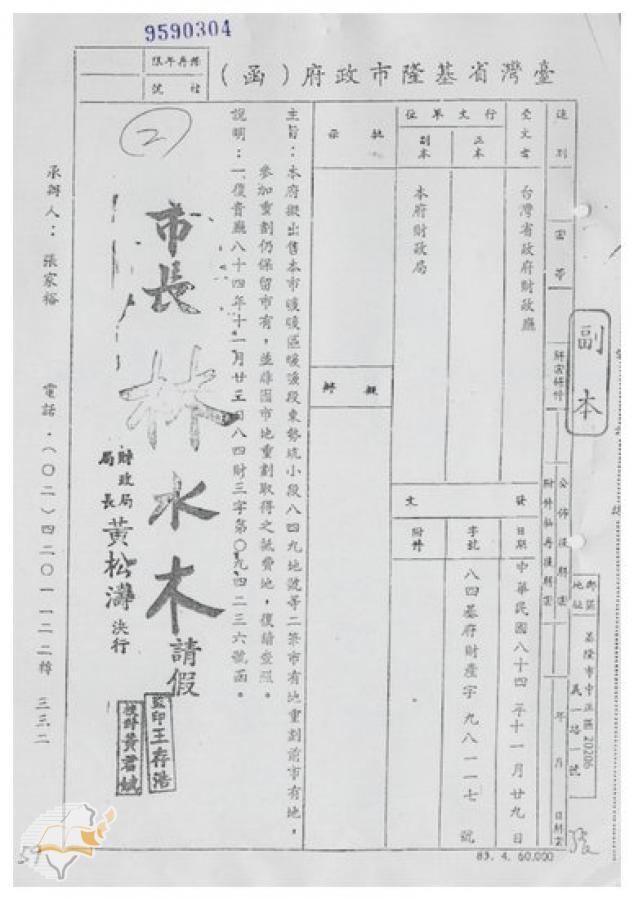 9590304
臺灣省基隆市政府（函）
檔號
保存年限
速別
密等
解密條件
公佈後解密
附件抽存後解密
年 月 日解密
郵區 20206
地址 基隆市中正區義一路一號
副本
受文者
台灣省政府財政廳
行文單位
正本
副本
本府財政局
發文
日期
中華民國八十四年十一月廿九日
字號
八四基府財產字九八一一七號
附件
批示
擬辦
主旨：本府擬出售本市暖暖區暖暖段東勢坑小段八四九地號等二筆市有地重劃前市有地，
參加重劃仍保留市有，並非因市地重劃取得之抵費地，復請查照。
說明：一、復貴廳八十四年十一月廿三日八四財三字第〇九四二三六號函。
②
市長 林水木 請假
財政局局長 黃松濤 決行
監印王存浩
校對黃君斌
承辦人：張家裕
電話：（〇二）四二〇一一二二轉 三三二
83. 4. 60,000
59